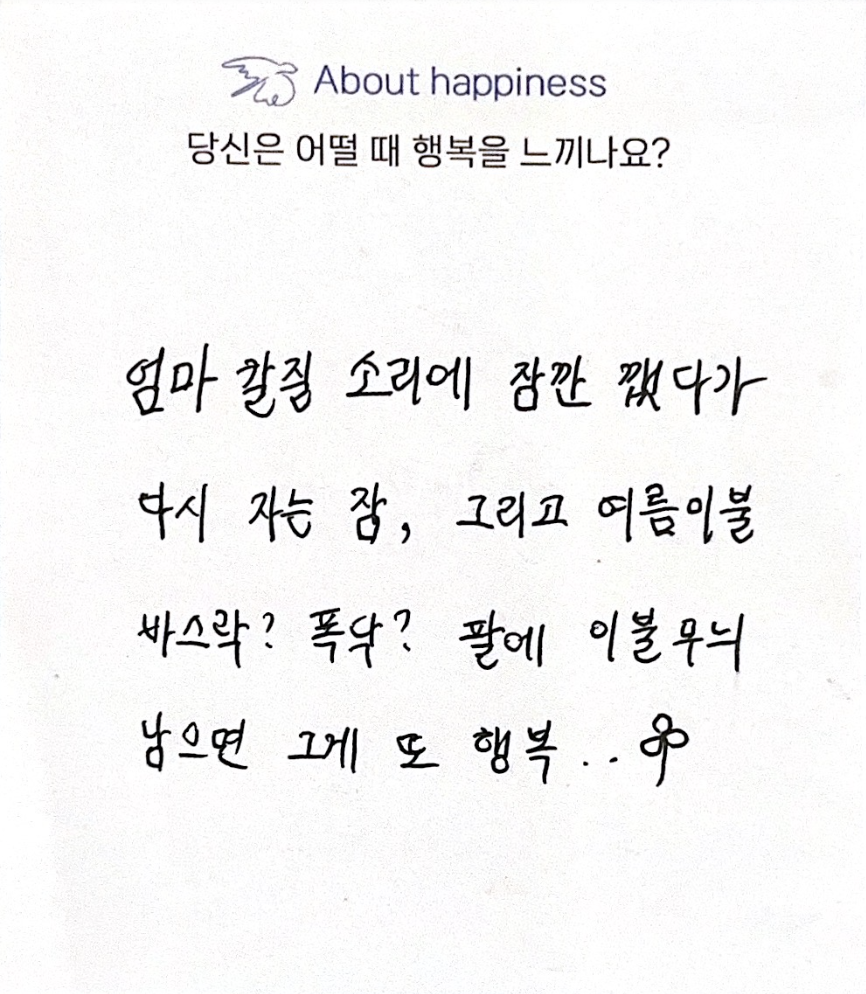 About happiness
당신은 어떨 때 행복을 느끼나요?
엄마 칼질 소리에 잠깐 깼다가
다시 자는 잠, 그리고 여름이불
바스락? 폭닥? 팔에 이불무늬
남으면 그게 또 행복..